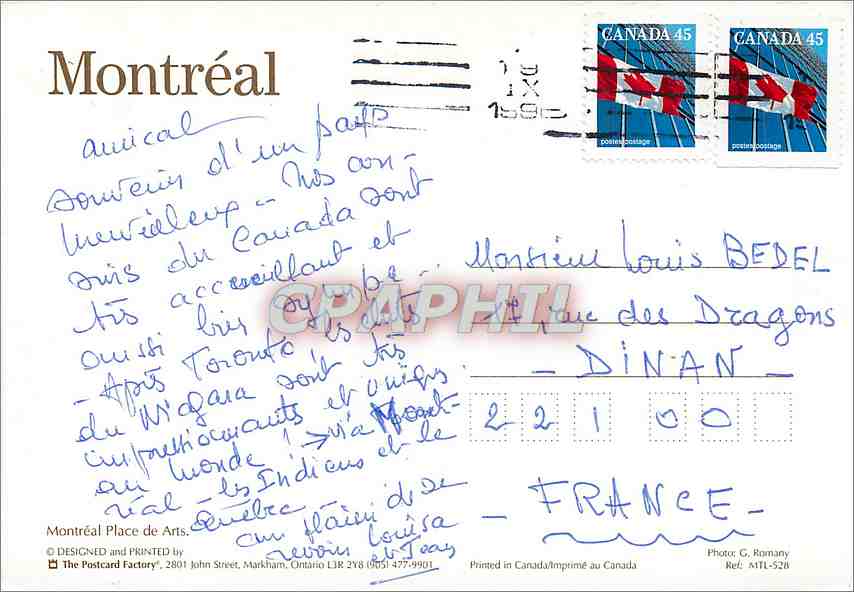 Montréal
CANADA 45
CANADA 45
19
IX
postes/postage
postes/postage
amical
souvenir d'un pays
merveilleux - Nos cou-
sins du Canada sont
très accueillant et
aussi bien sympa-
- Après Toronto, les chutes
du Niagara sont très
impressionnants et uniques
au monde ! → via Mont-
réal - les Indiens et le
Québec -
au plaisir de se
revoir Louisa
et Jean
Monsieur Louis BEDEL
17, rue des Dragons
- DINAN -
22100
- FRANCE -
CPAPHIL
Montréal Place de Arts.
© DESIGNED and PRINTED by
The Postcard Factory®, 2801 John Street, Markham, Ontario L3R 2Y8 (905) 477-9901
Printed in Canada/Imprimé au Canada
Photo: G. Romany
Ref: MTL-528